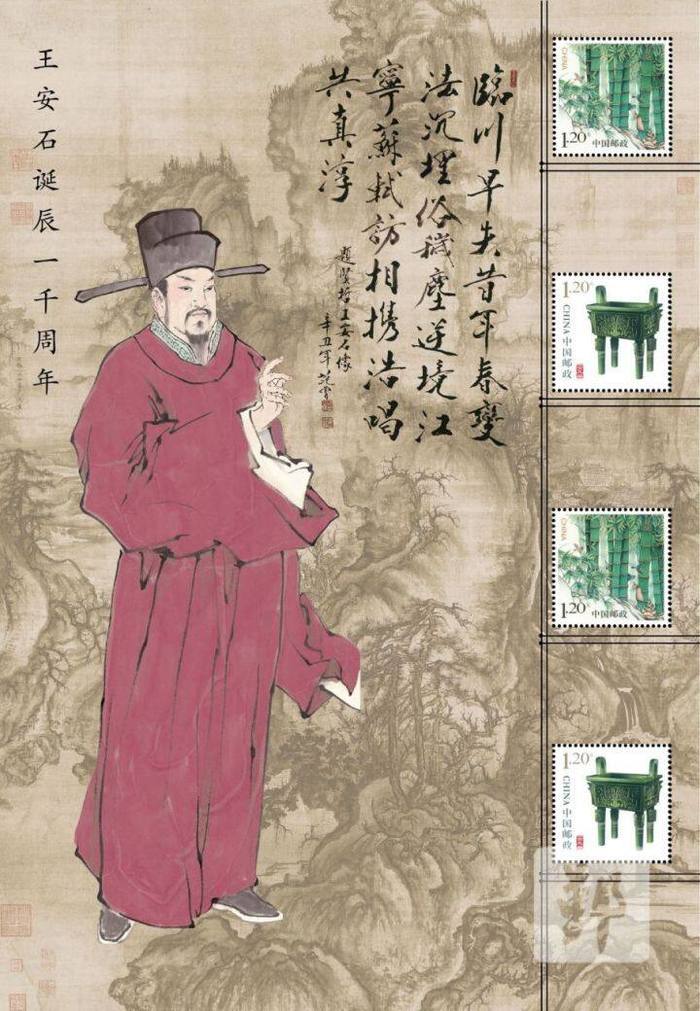 王安石诞辰一千周年
臨川早失昔年春變
法沉埋俗穢塵逆境江
寧蘇軾訪相携浩唱
共真淳
王安石像
辛丑年
CHINA
1.20元
中国邮政
1.20元
CHINA 中国邮政
CHINA
1.20元
中国邮政
1.20元
CHINA 中国邮政